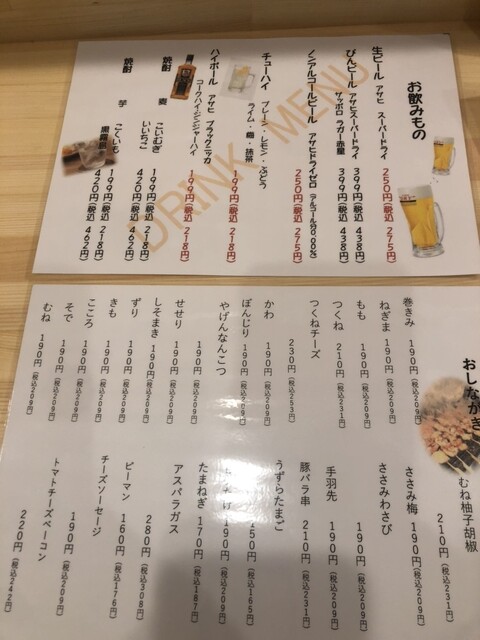 お飲みもの
DRINK MENU
生ビール アサヒ スーパードライ 250円(税込 275円)
びんビール アサヒスーパードライ 399円(税込 438円)
サッポロ ラガー赤星 399円(税込 438円)
ノンアルコールビール アサヒドライゼロ(アルコール分0.00%) 250円(税込 275円)
チューハイ プレーン・レモン・ぶどう
ライム・梅・緑茶 199円(税込 218円)
ハイボール アサヒ ブラックニッカ
コークハイ・ジンジャーハイ 199円(税込 218円)
焼酎 麦 こいむぎ 199円(税込 218円)
いいちこ 420円(税込 462円)
焼酎 芋 こくいも 199円(税込 218円)
黒霧島 420円(税込 462円)
おしながき
巻きみ 190円(税込209円)
ねぎま 190円(税込209円)
もも 190円(税込209円)
つくね 210円(税込231円)
つくねチーズ 230円(税込253円)
かわ 190円(税込209円)
ぼんじり 190円(税込209円)
やげんなんこつ 190円(税込209円)
せせり 190円(税込209円)
しそまき 190円(税込209円)
ずり 190円(税込209円)
きも 190円(税込209円)
こころ 190円(税込209円)
そで 190円(税込209円)
むね 190円(税込209円)
むね柚子胡椒 210円(税込231円)
ささみ梅 190円(税込209円)
ささみわさび 190円(税込209円)
手羽先 190円(税込209円)
豚バラ串 210円(税込231円)
うずらたまご 150円(税込165円)
190円(税込209円)
たまねぎ 170円(税込187円)
アスパラガス 280円(税込308円)
ピーマン 160円(税込176円)
チーズソーセージ 190円(税込209円)
トマトチーズベーコン 220円(税込242円)